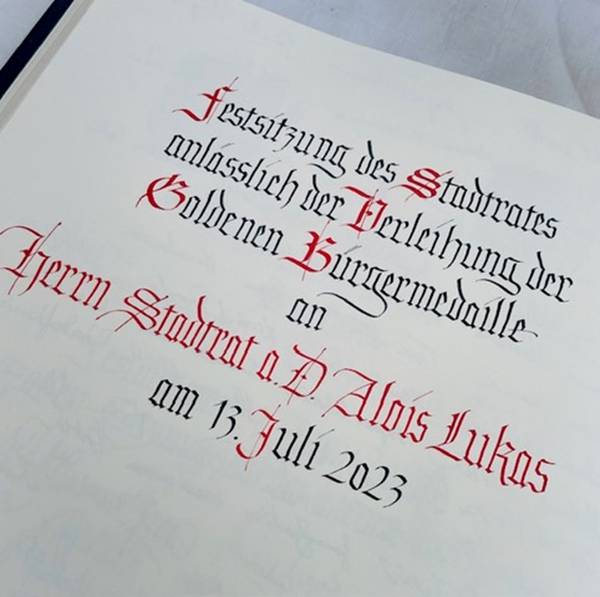 Festsitzung des Stadtrates
anlässlich der Verleihung der
Goldenen Bürgermedaille
an
Herrn Stadtrat a.D. Alois Lukas
am 13. Juli 2023